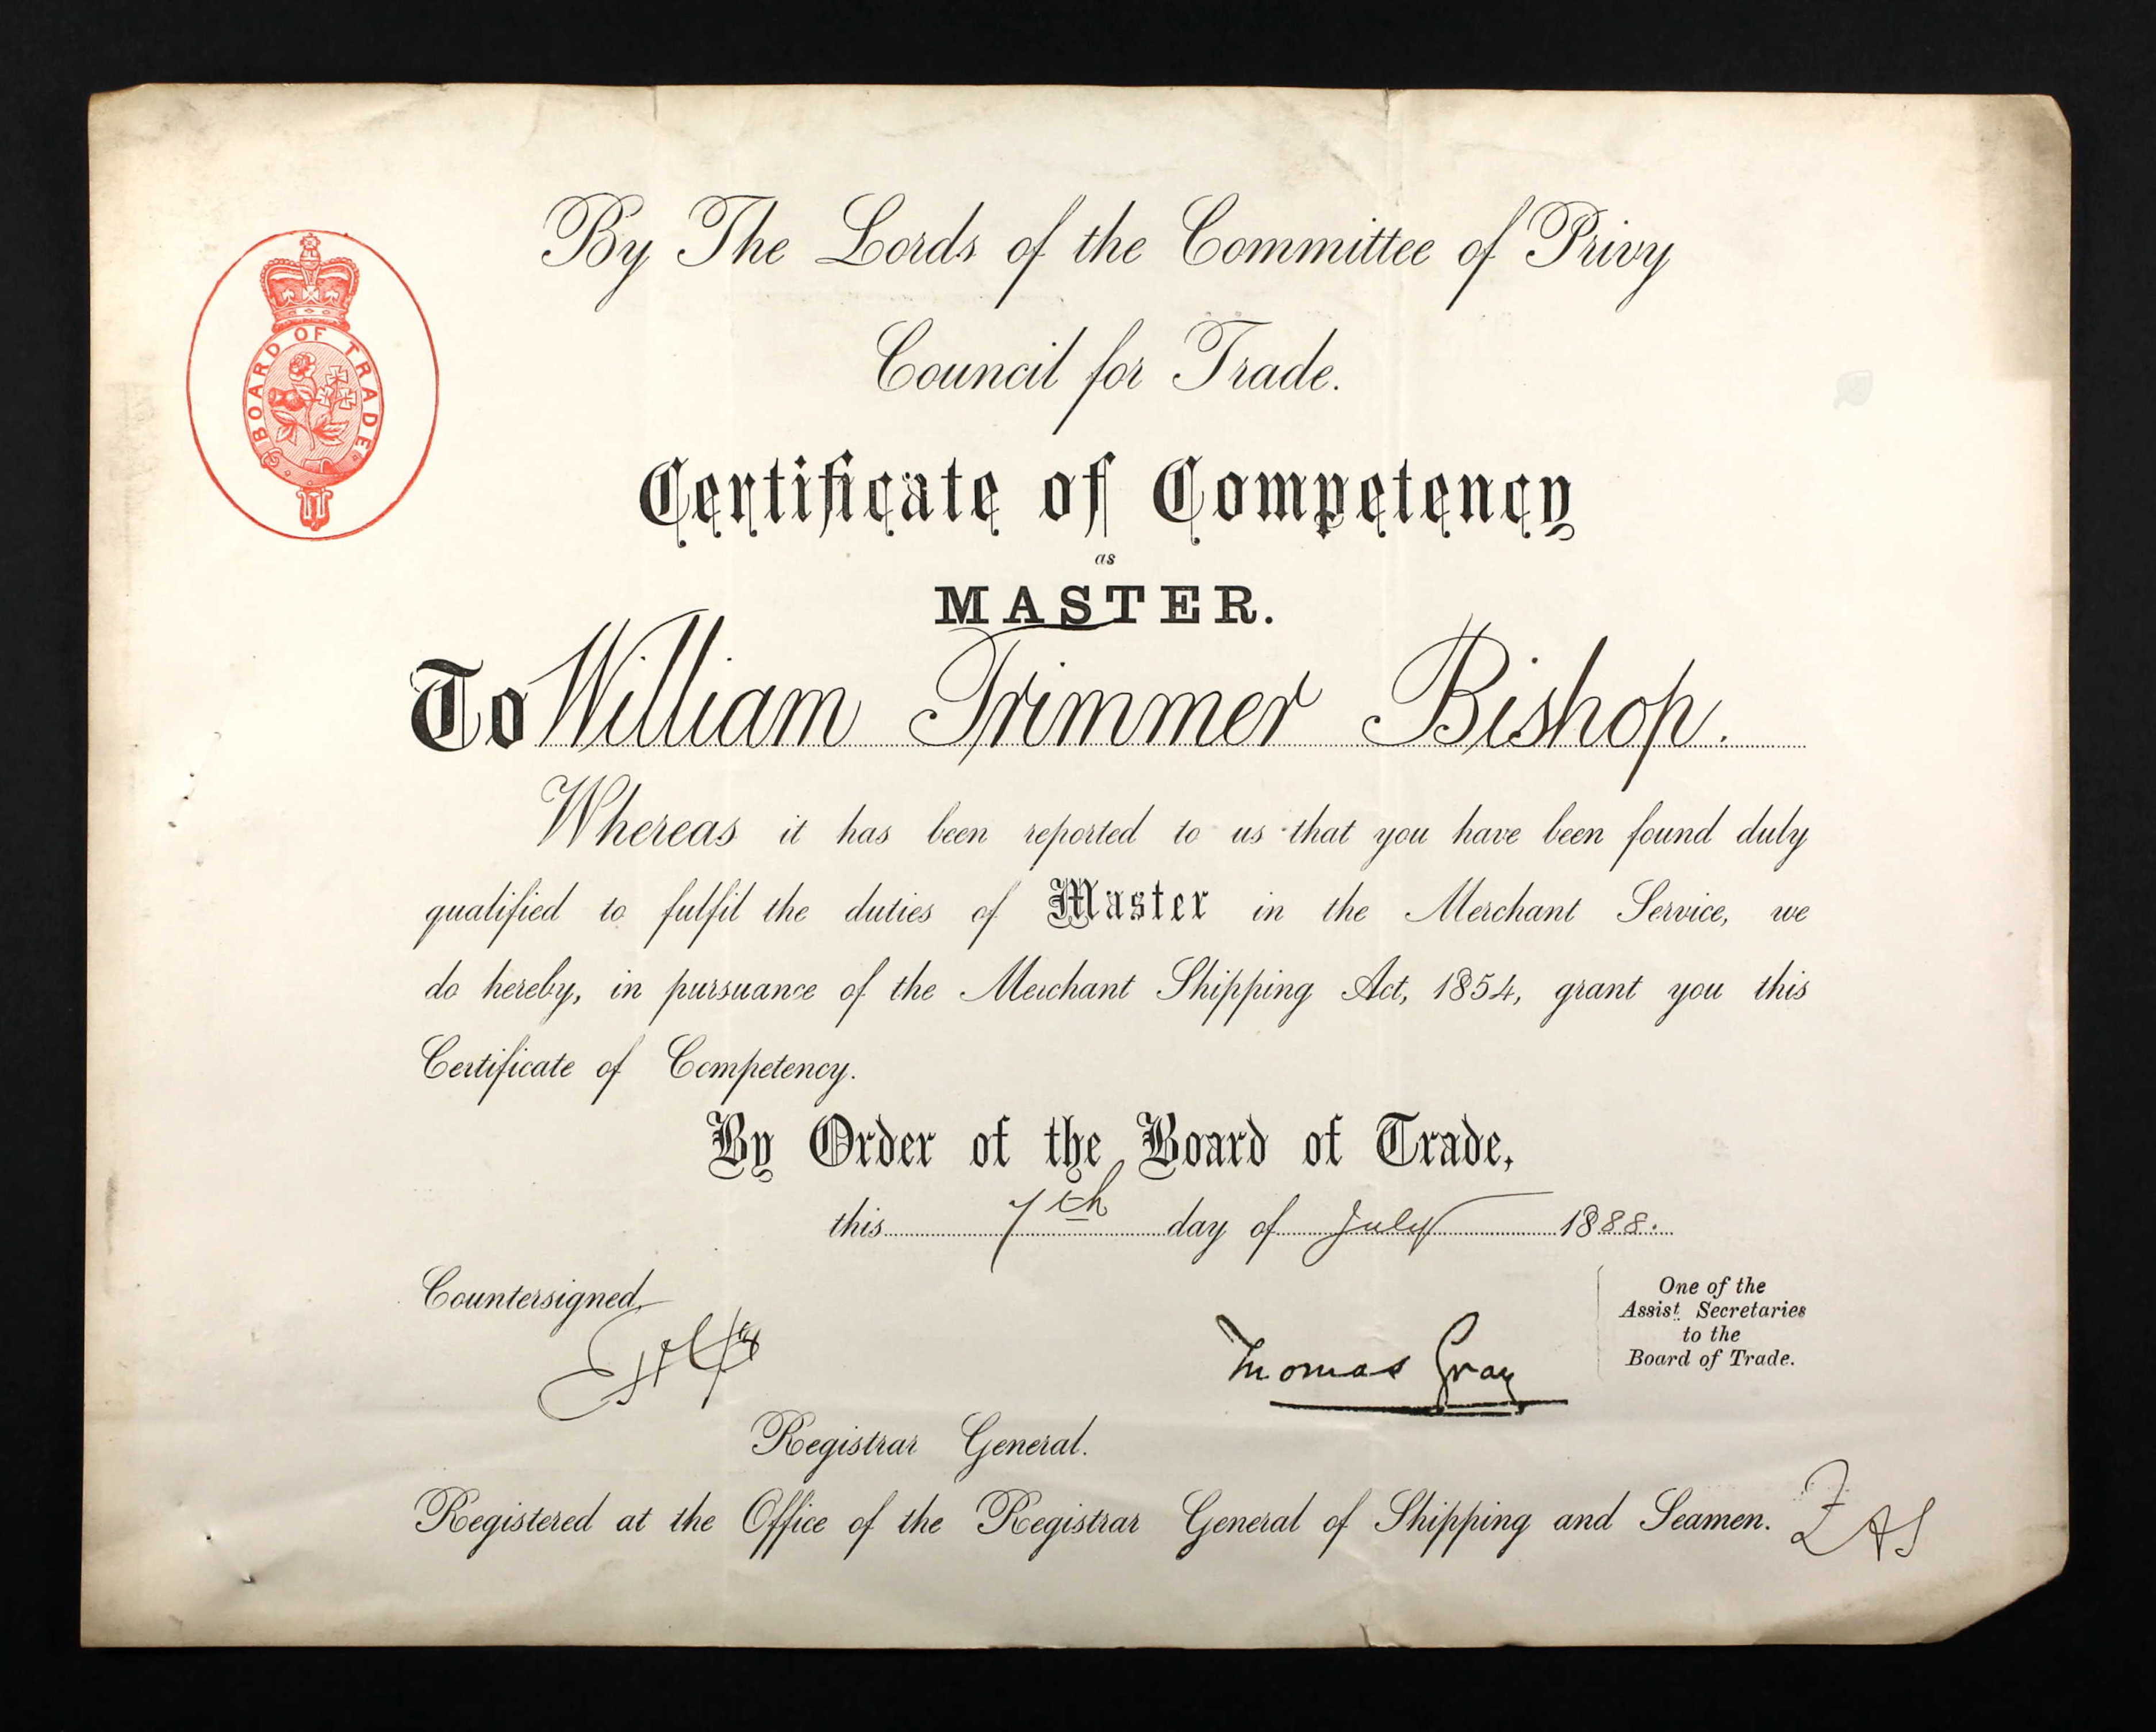 By The Lords of the Committee of Privy
Council for Trade.
BOARD OF TRADE
Certificate of Competency
as
MASTER.
To William Trimmer Bishop.
Whereas it has been reported to us that you have been found duly
qualified to fulfil the duties of Master in the Merchant Service, we
do hereby, in pursuance of the Merchant Shipping Act, 1854, grant you this
Certificate of Competency.
By Order of the Board of Trade,
this 7th day of July 1888.
Countersigned,
One of the
Assist. Secretaries
to the
Board of Trade.
Thomas Gray
Registrar General.
Registered at the Office of the Registrar General of Shipping and Seamen.